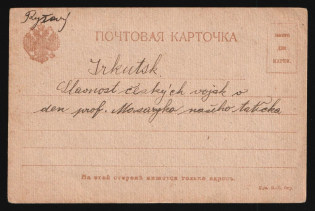 ПОЧТОВАЯ КАРТОЧКА
МѢСТО
ДЛЯ
МАРКИ.
Irkutsk.
Slavnost českých vojsk v
den prof. Masaryka našeho tatíčka
На этой сторонѣ пишется только адресъ.